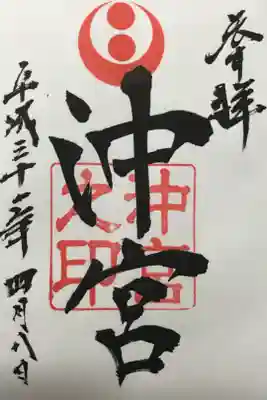 奉拝
沖宮
沖宮之印
平成三十一年四月八日